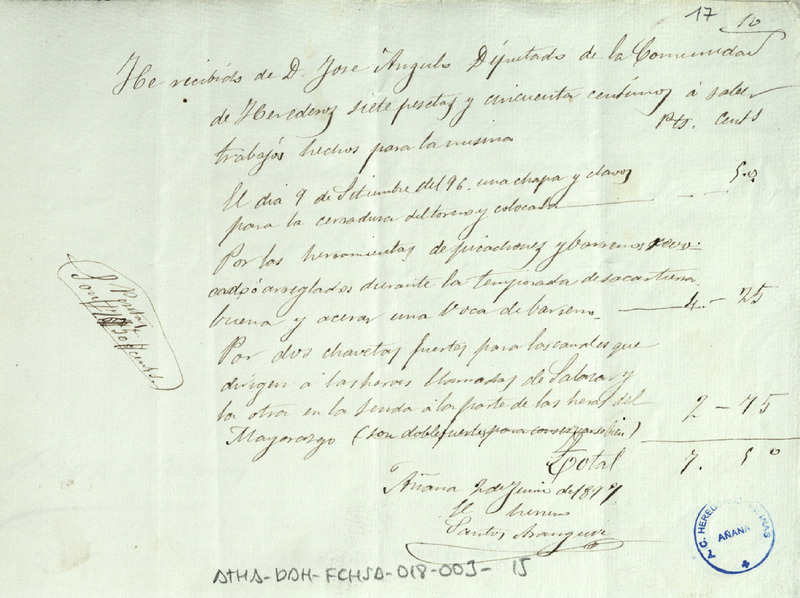 17 10
He recibido de D. Jose Angulo Diputado de la Comunidad
de Herederos siete pesetas y cincuenta centimos á saber
Pts. Cents
trabajos hechos para la misma
El dia 9 de Setiembre del 96. una chapa y clavos
para la cerradura del torno y colocarla
Por las herramientas de picachones y barrenos
arreglados durante la temporada de sacar tierra
buena y acerar una boca de barreno 4 - 25
Por dos chavetas fuertes para los canales que
dirigen á las heras llamadas de Salazar y
la otra en la senda á la parte de las heras del 2 - 75
Mayorazgo (son doble fuertes para conservarse bien)
Total 7. 50
Añana 2 de Junio de 1897
El herrero
Santos Aranguiz
Son
AÑANA
ATHA-DAH-FCHSA-018-003-15